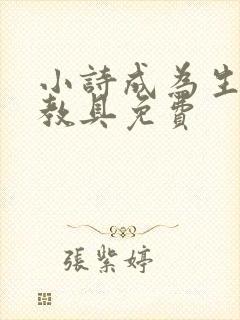 小詩成為生
教具免費
張紫婷